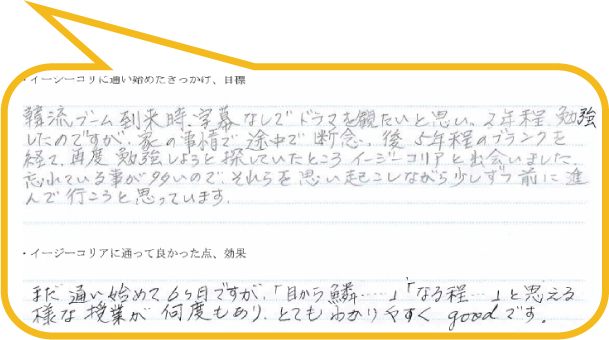 ・イージーコリに通い始めたきっかけ、目標
韓流ブーム到来時、字幕なしでドラマを観たいと思い、2年程勉強
したのですが、家の事情で途中で断念。後5年程のブランクを
経て、再度勉強しようと探していたところイージーコリアと出会いました。
忘れている事が多いので、それらを思い起こしながら少しずつ前に進
んで行こうと思っています。
・イージーコリアに通って良かった点、効果
まだ通い始めて6ヶ月ですが、「目から鱗……」「なる程…」と思える
様な授業が何度もあり、とてもわかりやすくgoodです。